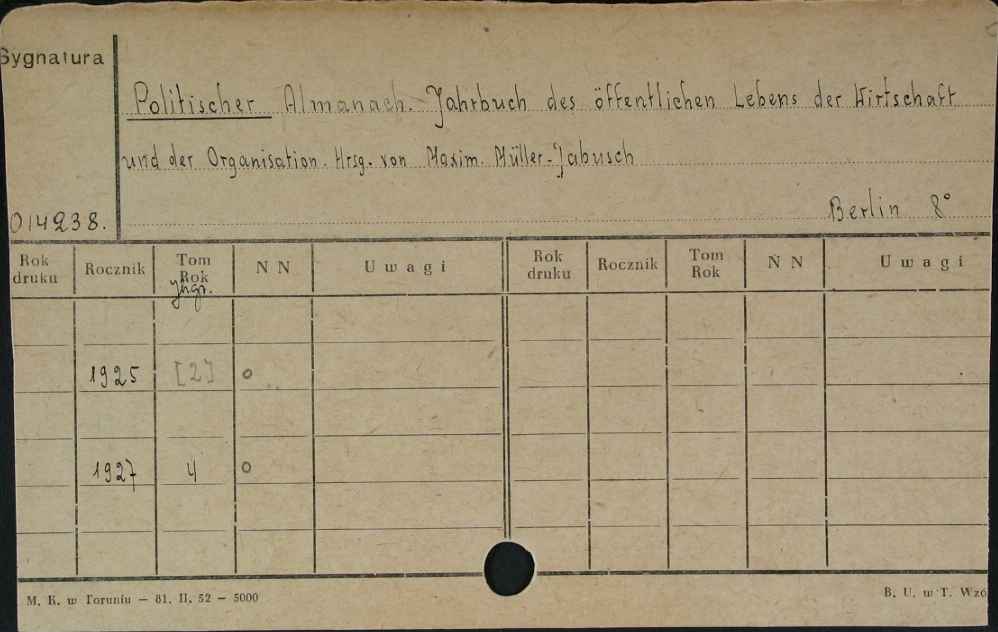 Sygnatura
Politischer Almanach. Jahrbuch des öffentlichen Lebens der Wirtschaft
und der Organisation. Hrsg. von Maxim. Müller-Jabusch
014238.
Berlin 8°
Rok druku Rocznik Tom Rok N N Uwagi Rok druku Rocznik Tom Rok N N Uwagi
Jhgr.
1925 [2] o
1927 4 o
M. K. w Toruniu — 81. II. 52 — 5000
B. U. w T. Wzó